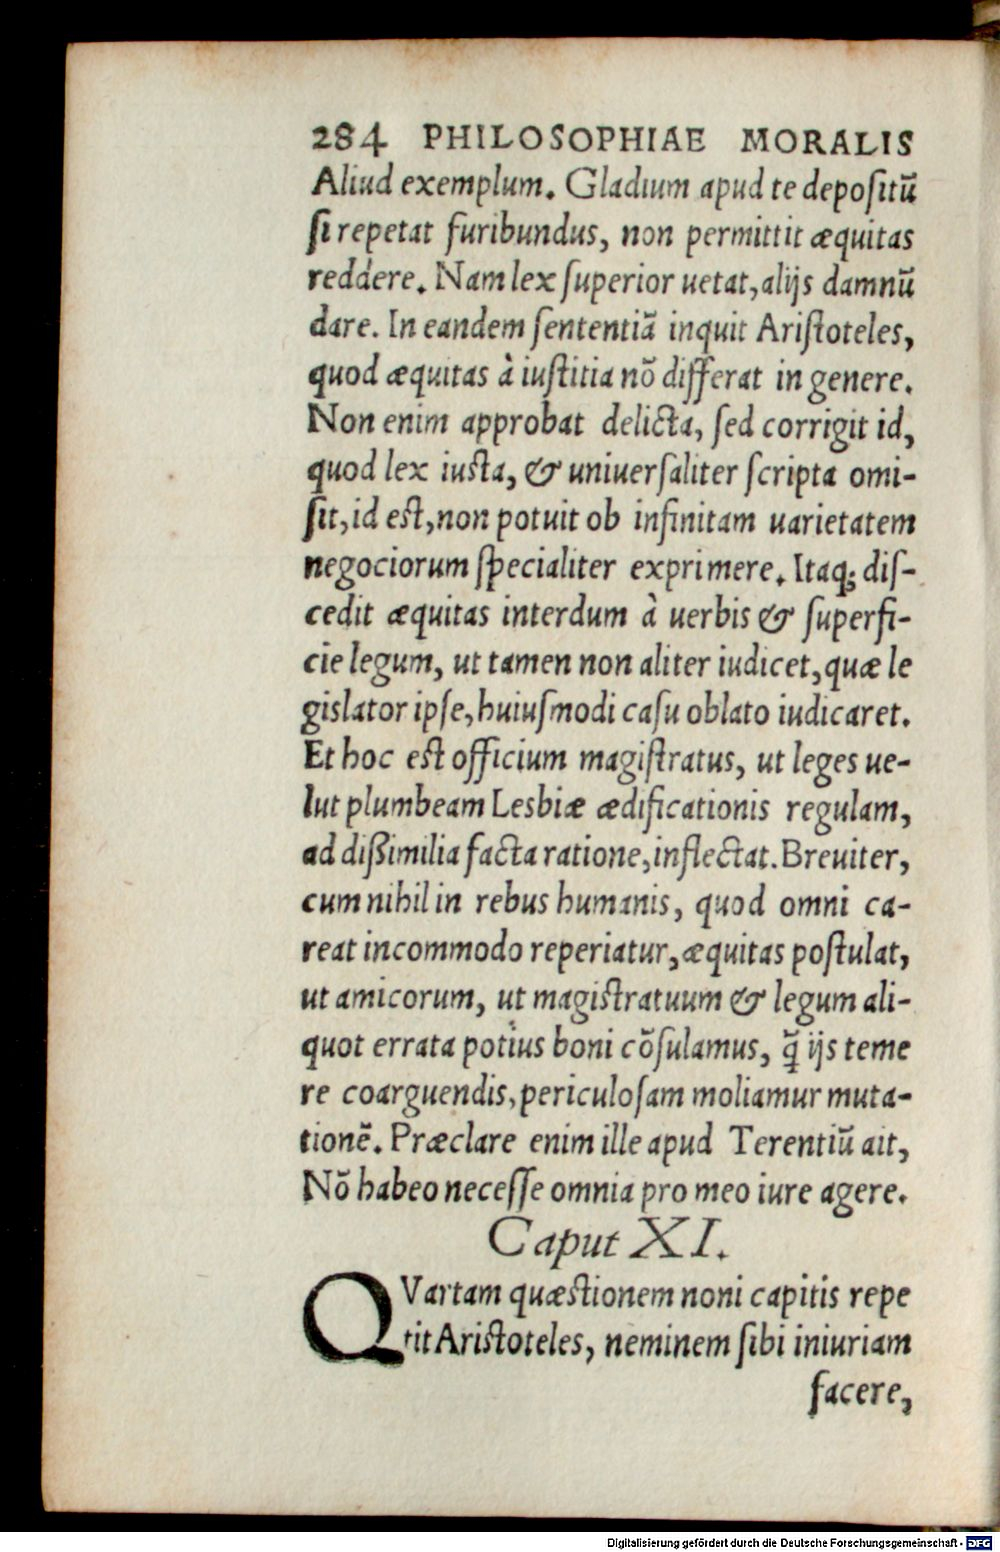 284 PHILOSOPHIAE MORALIS
Aliud exemplum. Gladium apud te depositũ
si repetat furibundus, non permittit æquitas
reddere. Nam lex superior uetat, alijs damnũ
dare. In eandem sententiã inquit Aristoteles,
quod æquitas à iustitia nõ differat in genere.
Non enim approbat delicta, sed corrigit id,
quod lex iusta, & uniuersaliter scripta omi-
sit, id est, non potuit ob infinitam uarietatem
negociorum specialiter exprimere. Itaq; dis-
cedit æquitas interdum à uerbis & superfi-
cie legum, ut tamen non aliter iudicet, quæ le
gislator ipse, huiusmodi casu oblato iudicaret.
Et hoc est officium magistratus, ut leges ue-
lut plumbeam Lesbiæ ædificationis regulam,
ad dißimilia facta ratione, inflectat. Breuiter,
cum nihil in rebus humanis, quod omni ca-
reat incommodo reperiatur, æquitas postulat,
ut amicorum, ut magistratuum & legum ali-
quot errata potius boni cõsulamus, q̃ ijs teme
re coarguendis, periculosam moliamur muta-
tionẽ. Præclare enim ille apud Terentiũ ait,
Nõ habeo necesse omnia pro meo iure agere.
Caput XI.
QVartam quæstionem noni capitis repe
tit Aristoteles, neminem sibi iniuriam
facere,
Digitalisierung gefördert durch die Deutsche Forschungsgemeinschaft - DFG